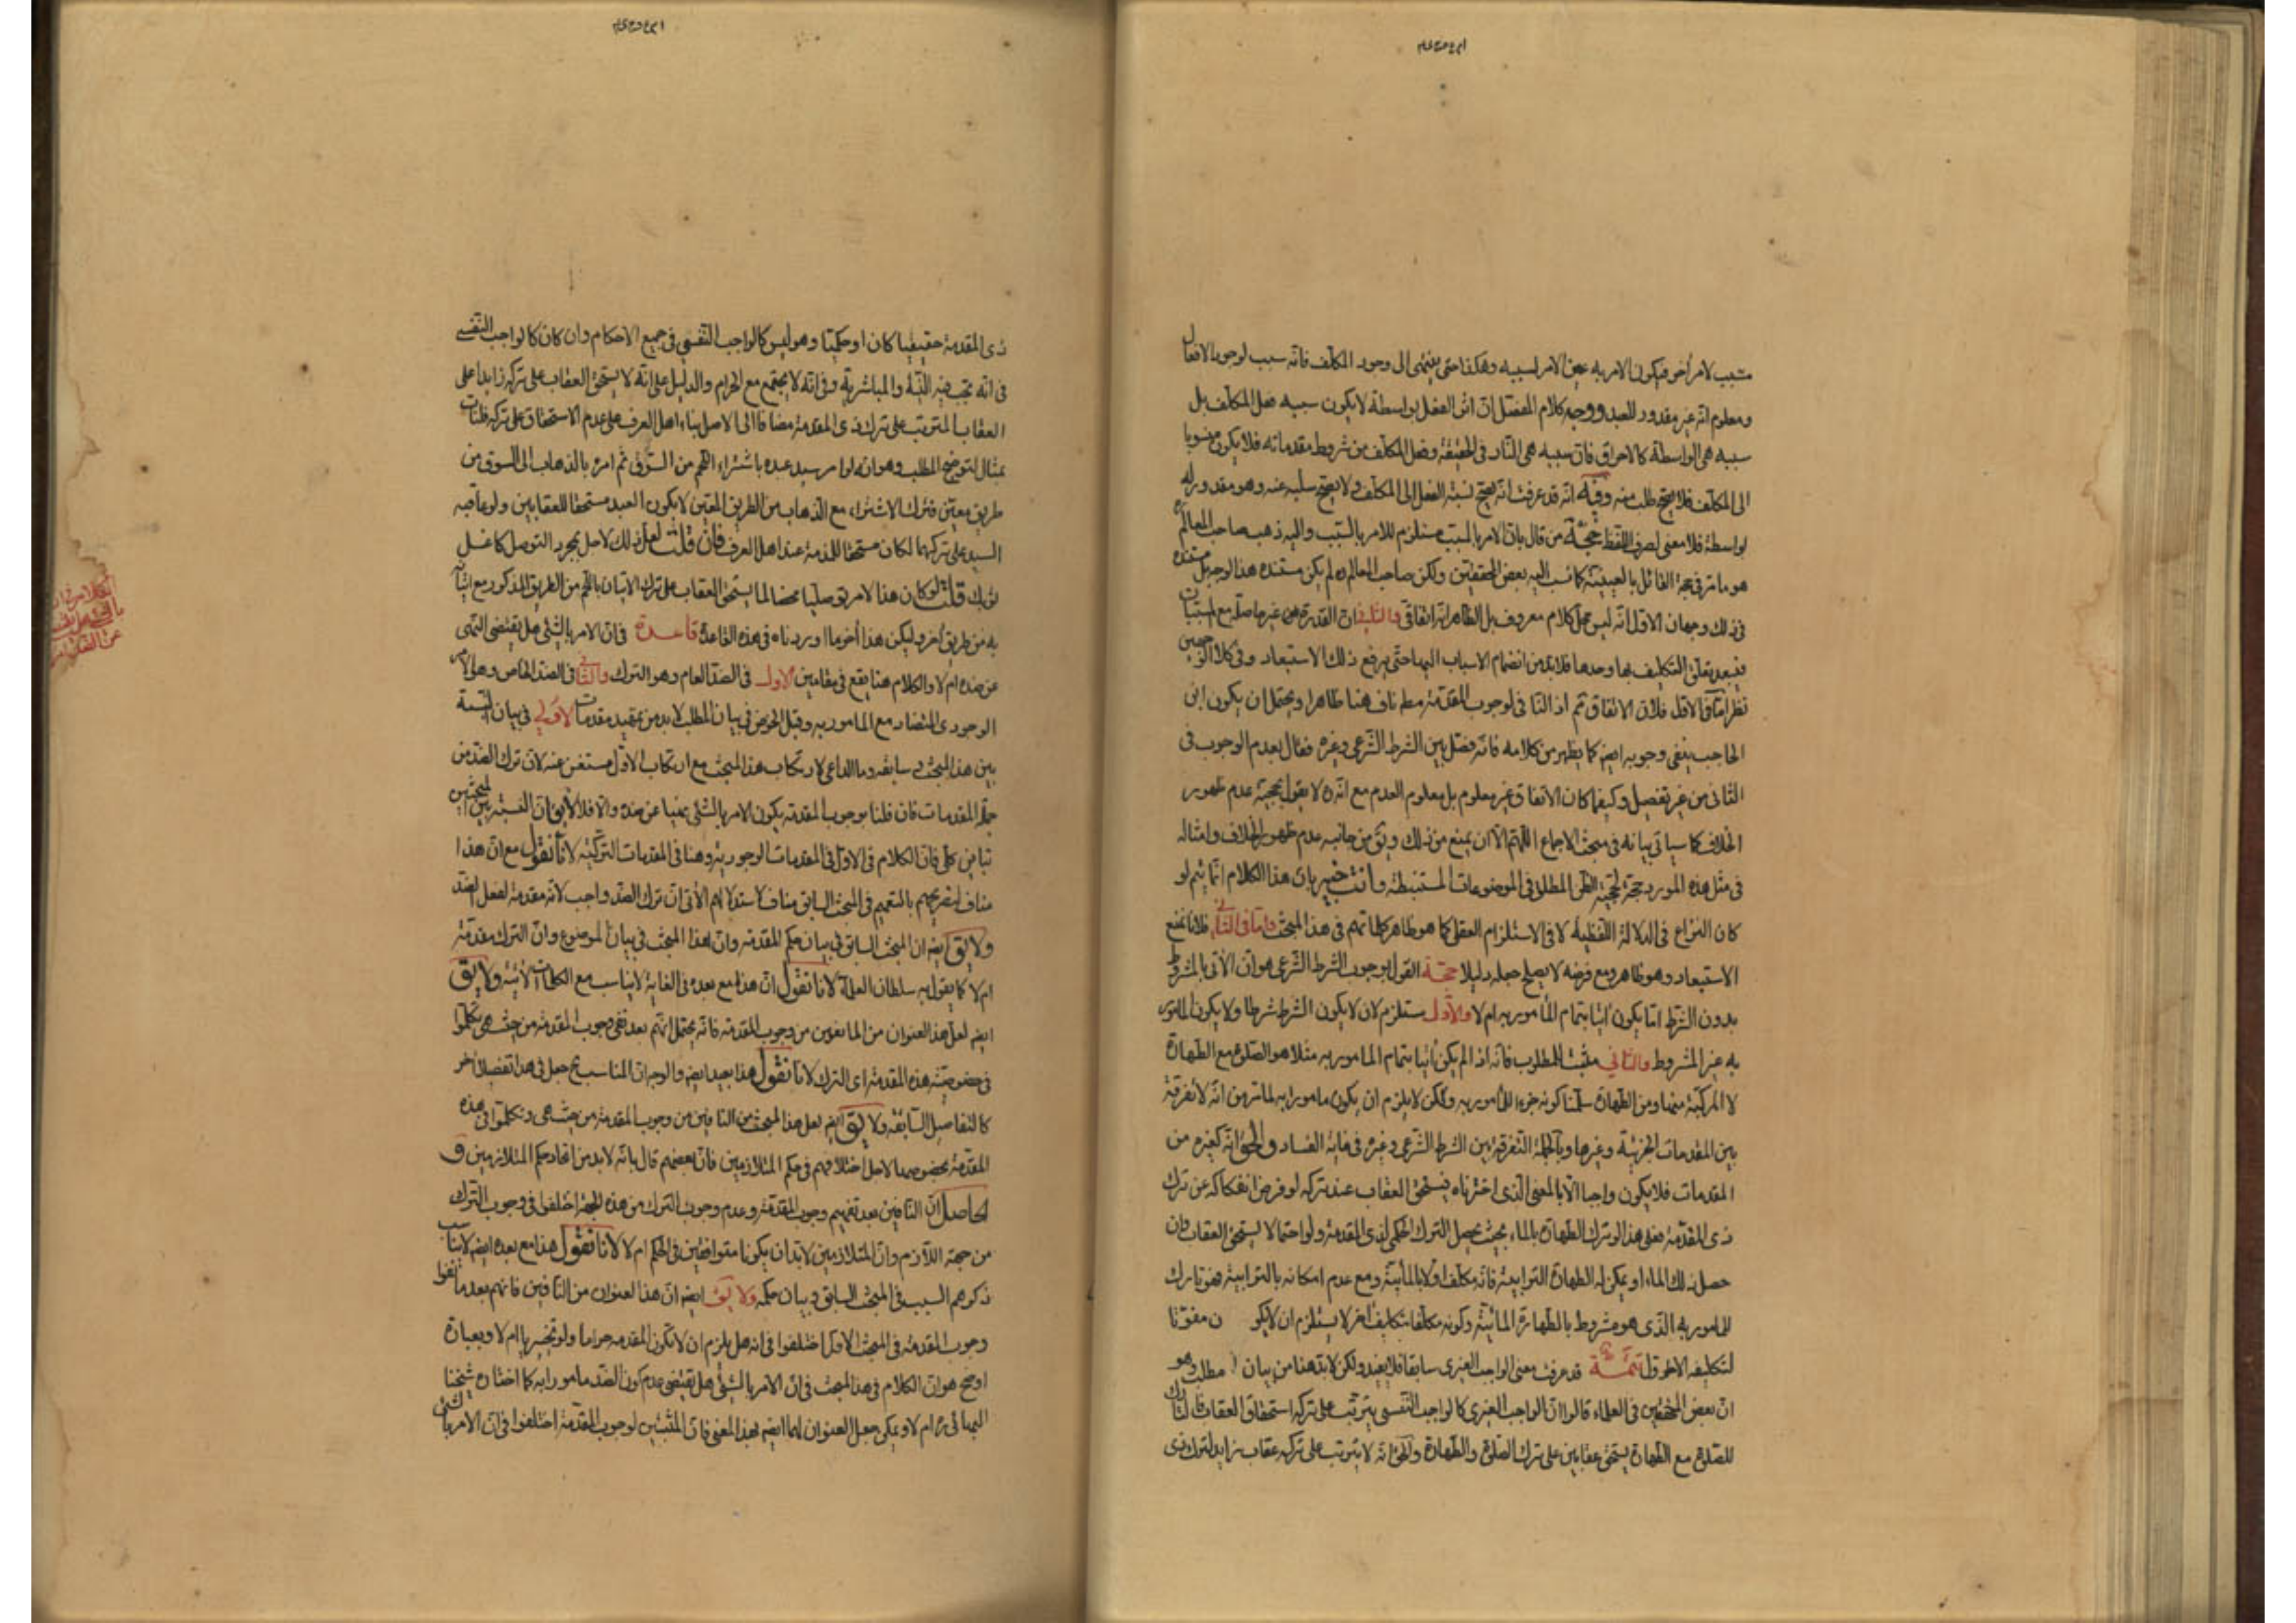 مسبب لامر اخر فيكون الامر به عين الامر لسببه وهكذا حتى ينتهى الى وجود المكلف فانه سبب لوجود الافعال
ومعلوم انه غير مقدور للعبد ووجه كلام المفصل ان اثر الفعل بواسطة لا يكون سببه فعل المكلف بل
سببه هى الواسطة كالاحراق فان سببه هى النار فى الحقيقة وفعل المكلف من شروط مقدماته فلا يكون منسوبا
الى المكلف فلا يصح طلب منه وفيه انه قد عرفت انه يصح نسبة الفعل الى المكلف ولا يصح سلبه عنه وهو مقدور له
بواسطة فلا معنى لصرف اللفظ حجة من قال بان الامر بالمسبب مستلزم للامر بالسبب واليه ذهب صاحب المعالم ره
هو ما مر فى حجة القائل بالعينية كما نسب اليه بعض المحققين ولكن صاحب المعالم ره لم يكن مستنده هذا الوجه بل مستنده
فى ذلك وجهان الاول انه ليس محل كلام معروف بل الظاهر انه اتفاقى والثانى ان القدرة غير حاصلة مع المسببات
فيبعد تعلق التكليف بها وحدها فلا بد من انضمام الاسباب اليها حتى يرفع ذلك الاستبعاد وفى كلا الوجهين
نظر اما فى الاول فلان الاتفاق ثم اذ النافى لوجوب المقدمة مط ناف هنا ظاهرا ويحتمل ان يكون ابن
الحاجب ينفى وجوبه ايضا كما يظهر من كلامه فانه فصل بين الشرط الشرعى وغيره فقال بعدم الوجوب فى
الثانى من غير تفصيل وكيفما كان الاتفاق غير معلوم بل معلوم العدم مع انه ره لا يقول بحجية عدم ظهور
الخلاف كما سياتى بيانه فى مبحث الاجماع اللهم الا ان يمنع من ذلك ويق من جانبه عدم ظهور الخلاف وامثاله
فى مثل هذه الموارد حجة لحجية الظن المطلق فى الموضوعات المستنبطة وانت خبير بان هذا الكلام انما يتم لو
كان النزاع فى الدلالة اللفظية لا فى الاستلزام العقلى كما هو ظاهر كلماتهم فى هذا المبحث واما فى الثانى فلانا نمنع
الاستبعاد وهو ظاهر ومع فرضه لا يصلح جعله دليلا حجة القول بوجوب الشرط الشرعى هو ان الاتى بالمشروط
بدون الشرط اما يكون اتيا بتمام المأمور به ام لا والاول مستلزم لان لا يكون الشرط شرطا ولا يكون المامور
به غير المشروط والثانى مثبت للمطلوب فانه اذ لم يكن اتيا بتمام المامور به مثلا هو الصلوة مع الطهارة
لا المركبة منها ومن الطهارة سلمنا كونه جزء للمأمور به ولكن لا يلزم ان يكون مامورا به لما مر من انه لا تفرقة
بين المقدمات الجزئية وغيرها وبالجملة التفرقة بين الشرط الشرعى وغيره فى غاية الفساد والحق انه كغيره من
المقدمات فلا يكون واجبا الا بالمعنى الذى اخترناه فيستحق العقاب عند تركه لو فرض انفكاكه عن ترك
ذى المقدمة فعلى هذا لو ترك الطهارة بالماء بحيث يحصل الترك الحكمى لذى المقدمة ولو احتمالا يستحق العقاب وان
حصل ذلك الماء او يمكن له الطهارة الترابية فانه مكلف اولا بالمائية ومع عدم امكانه بالترابية فهو تارك
للمامور به الذى هو مشروط بالطهارة المائية وكونه مكلفا بتكليف اخر لا يستلزم ان لا يكو ن مفوتا
لتكليفه الاول تتمة قد عرفت معنى الواجب الغيرى سابقا فلا يعيد ولكن لا بد هنا من بيان مطلب وهو
ان بعض المحققين فى العلماء قالوا ان الواجب الغيرى كالواجب النفسى يترتب على تركه استحقاق العقاب فالتارك
للصلوة مع الطهارة يستحق عقابين على ترك الصلوة والطهارة والحق انه لا يترتب على تركه عقاب زايد لترك ذى
ذى المقدمة حقيقيا كان او حكميا وهو ليس كالواجب النفسى فى جميع الاحكام وان كان كالواجب النفسى
فى انه تجب فيه النية والمباشرية وفى انه لا يجتمع مع الحرام والدليل على انه لا يستحق العقاب على تركه زايدا على
العقاب المترتب على ترك ذى المقدمة مضافا الى الاصل بناء اهل العرف على عدم الاستحقاق على تركه فلنات
بمثال لتوضيح المطلب وهو انه لو امر سيد عبده باشتراء اللحم من السوق ثم امره بالذهاب الى السوق من
طريق معين فترك الاشتراء مع الذهاب من الطريق المعين لا يكون العبد مستحقا للعقابين ولو عاقبه
السيد على تركهما لكان مستحقا للذمة عند اهل العرف فان قلت لعل ذلك لاجل مجرد التوصل كغسل
ثوبك قلت لو كان هذا الامر توصليا محضا لما يستحق العقاب على ترك الاتيان باللحم من الطريق المذكور مع اتيانه
به من طريق اخر وليكن هذا اخر ما اوردناه فى هذه القاعدة قاعدة فى ان الامر بالشئ هل يقتضى النهى
عن ضده ام لا والكلام هنا يقع فى مقامين الاول فى الضد العام وهو الترك والثانى فى الضد الخاص وهو الامر
الوجودى المتضاد مع المامور به وقبل الخوض فى بيان المطلب لا بد من تمهيد مقدمات الاولى فى بيان النسبة
بين هذا المبحث وسابقه وما الداعى لارتكاب هذا المبحث مع ارتكاب الاول مستغن عنه لان ترك الضد من
جملة المقدمات فان قلنا بوجوب المقدمة يكون الامر بالشئ نهيا عن ضده والا فلا لا يق ان النسبة بين المبحثين
تباين كلى فان الكلام فى الاول فى المقدمات الوجودية وهنا فى المقدمات التركية لانا نقول مع ان هذا
مناف لتصريحهم بالتعميم فى المبحث السابق مناف لاستدلالهم الاتى ان ترك الضد واجب لانه مقدمة لفعل الضد
ولا يق ايضا ان المبحث السابق فى بيان حكم المقدمة وان هذا المبحث فى بيان الموضوع وان الترك مقدمة
ام لا كما يقول به سلطان العلماء لانا نقول ان هذا مع بعده فى الغاية لا يناسب مع الكلمات الاتية ولا يق
ايضا لعل هذا العنوان من المانعين من وجوب المقدمة فانه يحتمل انهم بعد نفى وجوب المقدمة من حيث هى تكلموا
فى خصوصية هذه المقدمة اى الترك لانا نقول هذا بعيد ايضا والوجه ان المناسب ح جعل هذا تفصيلا اخر
كالتفاصيل السابقة ولا يق ايضا لعل هذا المبحث من النافين من وجوب المقدمة من حيث هى وتكلموا فى هذه
المقدمة بخصوصها لاجل اختلافهم فى حكم المتلازمين فان بعضهم قال بانه لا بد من اتحاد حكم المتلازمين و
الحاصل ان النافين بعد نفيهم وجوب المقدمة وعدم وجوب الترك من هذه الجهة اختلفوا فى وجوب الترك
من جهة التلازم وان المتلازمين لا بد ان يكونا متوافقين فى الحكم ام لا لانا نقول هذا مع بعده ايضا لا يناسب
ذكرهم السبب فى المبحث السابق وبيان حكمه ولا يق ايضا ان هذا العنوان من النافين فانهم بعد ما نفوا
وجوب المقدمة فى المبحث الاول اختلفوا فى انه هل يلزم ان لا تكون المقدمة حراما ولو تخييريا ام لا وبعبارة
اوضح هو ان الكلام فى هذا المبحث فى ان الامر بالشئ هل يقتضى عدم كون الضد مامورا به كما اختاره شيخنا
البهائى ره ام لا ويمكن جعل العنوان لهما ايضا بهذا المعنى فان المثبتين لوجوب المقدمة اختلفوا فى ان الامر بالشئ